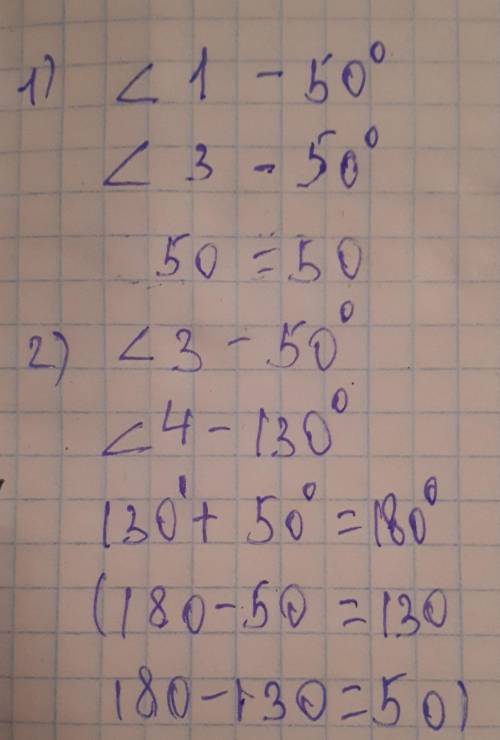 1) ∠ 1 - 50°
∠ 3 - 50°
50 = 50
2) ∠ 3 - 50°
∠ 4 - 130°
130° + 50° = 180°
(180 - 50 = 130
180 - 130 = 50)